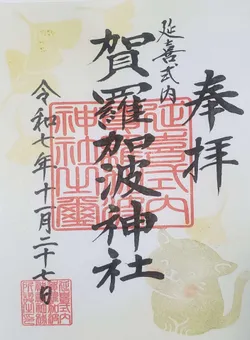 奉拝
延喜式内
賀羅加波神社
令和七年十一月二十七日
延喜式内
神社之璽